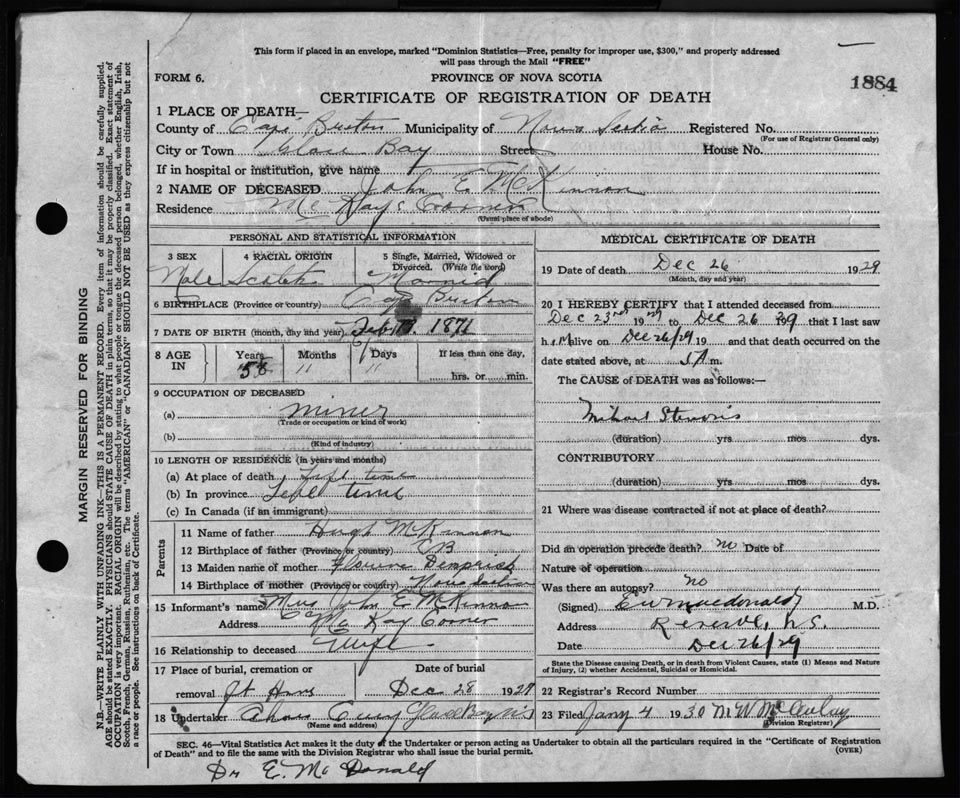 This form if placed in an envelope, marked "Dominion Statistics—Free, penalty for improper use, $300," and properly addressed
will pass through the Mail "FREE"
FORM 6.
PROVINCE OF NOVA SCOTIA
1884
CERTIFICATE OF REGISTRATION OF DEATH
1 PLACE OF DEATH—
County of Cape Breton Municipality of Nova Scotia Registered No.
(For use of Registrar General only)
City or Town Glace Bay Street House No.
If in hospital or institution, give name
2 NAME OF DECEASED John E McKinnon
Residence McKays Corner
(Usual place of abode)
PERSONAL AND STATISTICAL INFORMATION
3 SEX 4 RACIAL ORIGIN 5 Single, Married, Widowed or Divorced. (Write the word)
Male Scotch Married
6 BIRTHPLACE (Province or country) Cape Breton
7 DATE OF BIRTH (month, day and year) 1871
8 AGE IN Years Months Days If less than one day,
58 " "
hrs. or min.
9 OCCUPATION OF DECEASED
(a) miner
(Trade or occupation or kind of work)
(b)
(Kind of industry)
10 LENGTH OF RESIDENCE (in years and months)
(a) At place of death Life time
(b) In province Life time
(c) In Canada (if an immigrant)
Parents
11 Name of father Hugh McKinnon
12 Birthplace of father (Province or country) CB
13 Maiden name of mother
14 Birthplace of mother (Province or country) Nova Scotia
15 Informant's name Mrs John E McKinnon
Address McKay Corner
16 Relationship to deceased Wife
17 Place of burial, cremation or removal Date of burial
Dec 28 1929
18 Undertaker Glace Bay NS
(Name and address)
MEDICAL CERTIFICATE OF DEATH
19 Date of death Dec 26 1929
(Month, day and year)
20 I HEREBY CERTIFY that I attended deceased from
Dec 23rd 1929 to Dec 26 29 that I last saw
him alive on Dec 26/29 19 and that death occurred on the
date stated above, at m.
The CAUSE of DEATH was as follows:—
Mitral Stenosis
(duration) yrs mos dys.
CONTRIBUTORY
(duration) yrs mos dys.
21 Where was disease contracted if not at place of death?
Did an operation precede death? no Date of
Nature of operation
Was there an autopsy? no
(Signed) M.D.
Address Reserve, N.S.
Date Dec 26/29
State the Disease causing Death, or in death from Violent Causes, state (1) Means and Nature
of Injury, (2) whether Accidental, Suicidal or Homicidal.
22 Registrar's Record Number
23 Filed Jany 4 1930 M W McAulay
(Division Registrar)
SEC. 46—Vital Statistics Act makes it the duty of the Undertaker or person acting as Undertaker to obtain all the particulars required in the "Certificate of Registration
of Death" and to file the same with the Division Registrar who shall issue the burial permit.
(OVER)
Dr E. McDonald
MARGIN RESERVED FOR BINDING
N.B.—WRITE PLAINLY WITH UNFADING INK—THIS IS A PERMANENT RECORD. Every item of information should be carefully supplied.
AGE should be stated EXACTLY. PHYSICIANS should STATE CAUSE OF DEATH in plain terms, so that it may be properly classified. Exact statement of
OCCUPATION is very important. RACIAL ORIGIN will be described by stating to what people or tongue the deceased person belonged, whether English, Irish,
Scotch, French, German, Russian, Ruthenian, etc. The terms "AMERICAN" or "CANADIAN" SHOULD NOT BE USED as they express citizenship but not
a race or people. See instructions on back of Certificate.